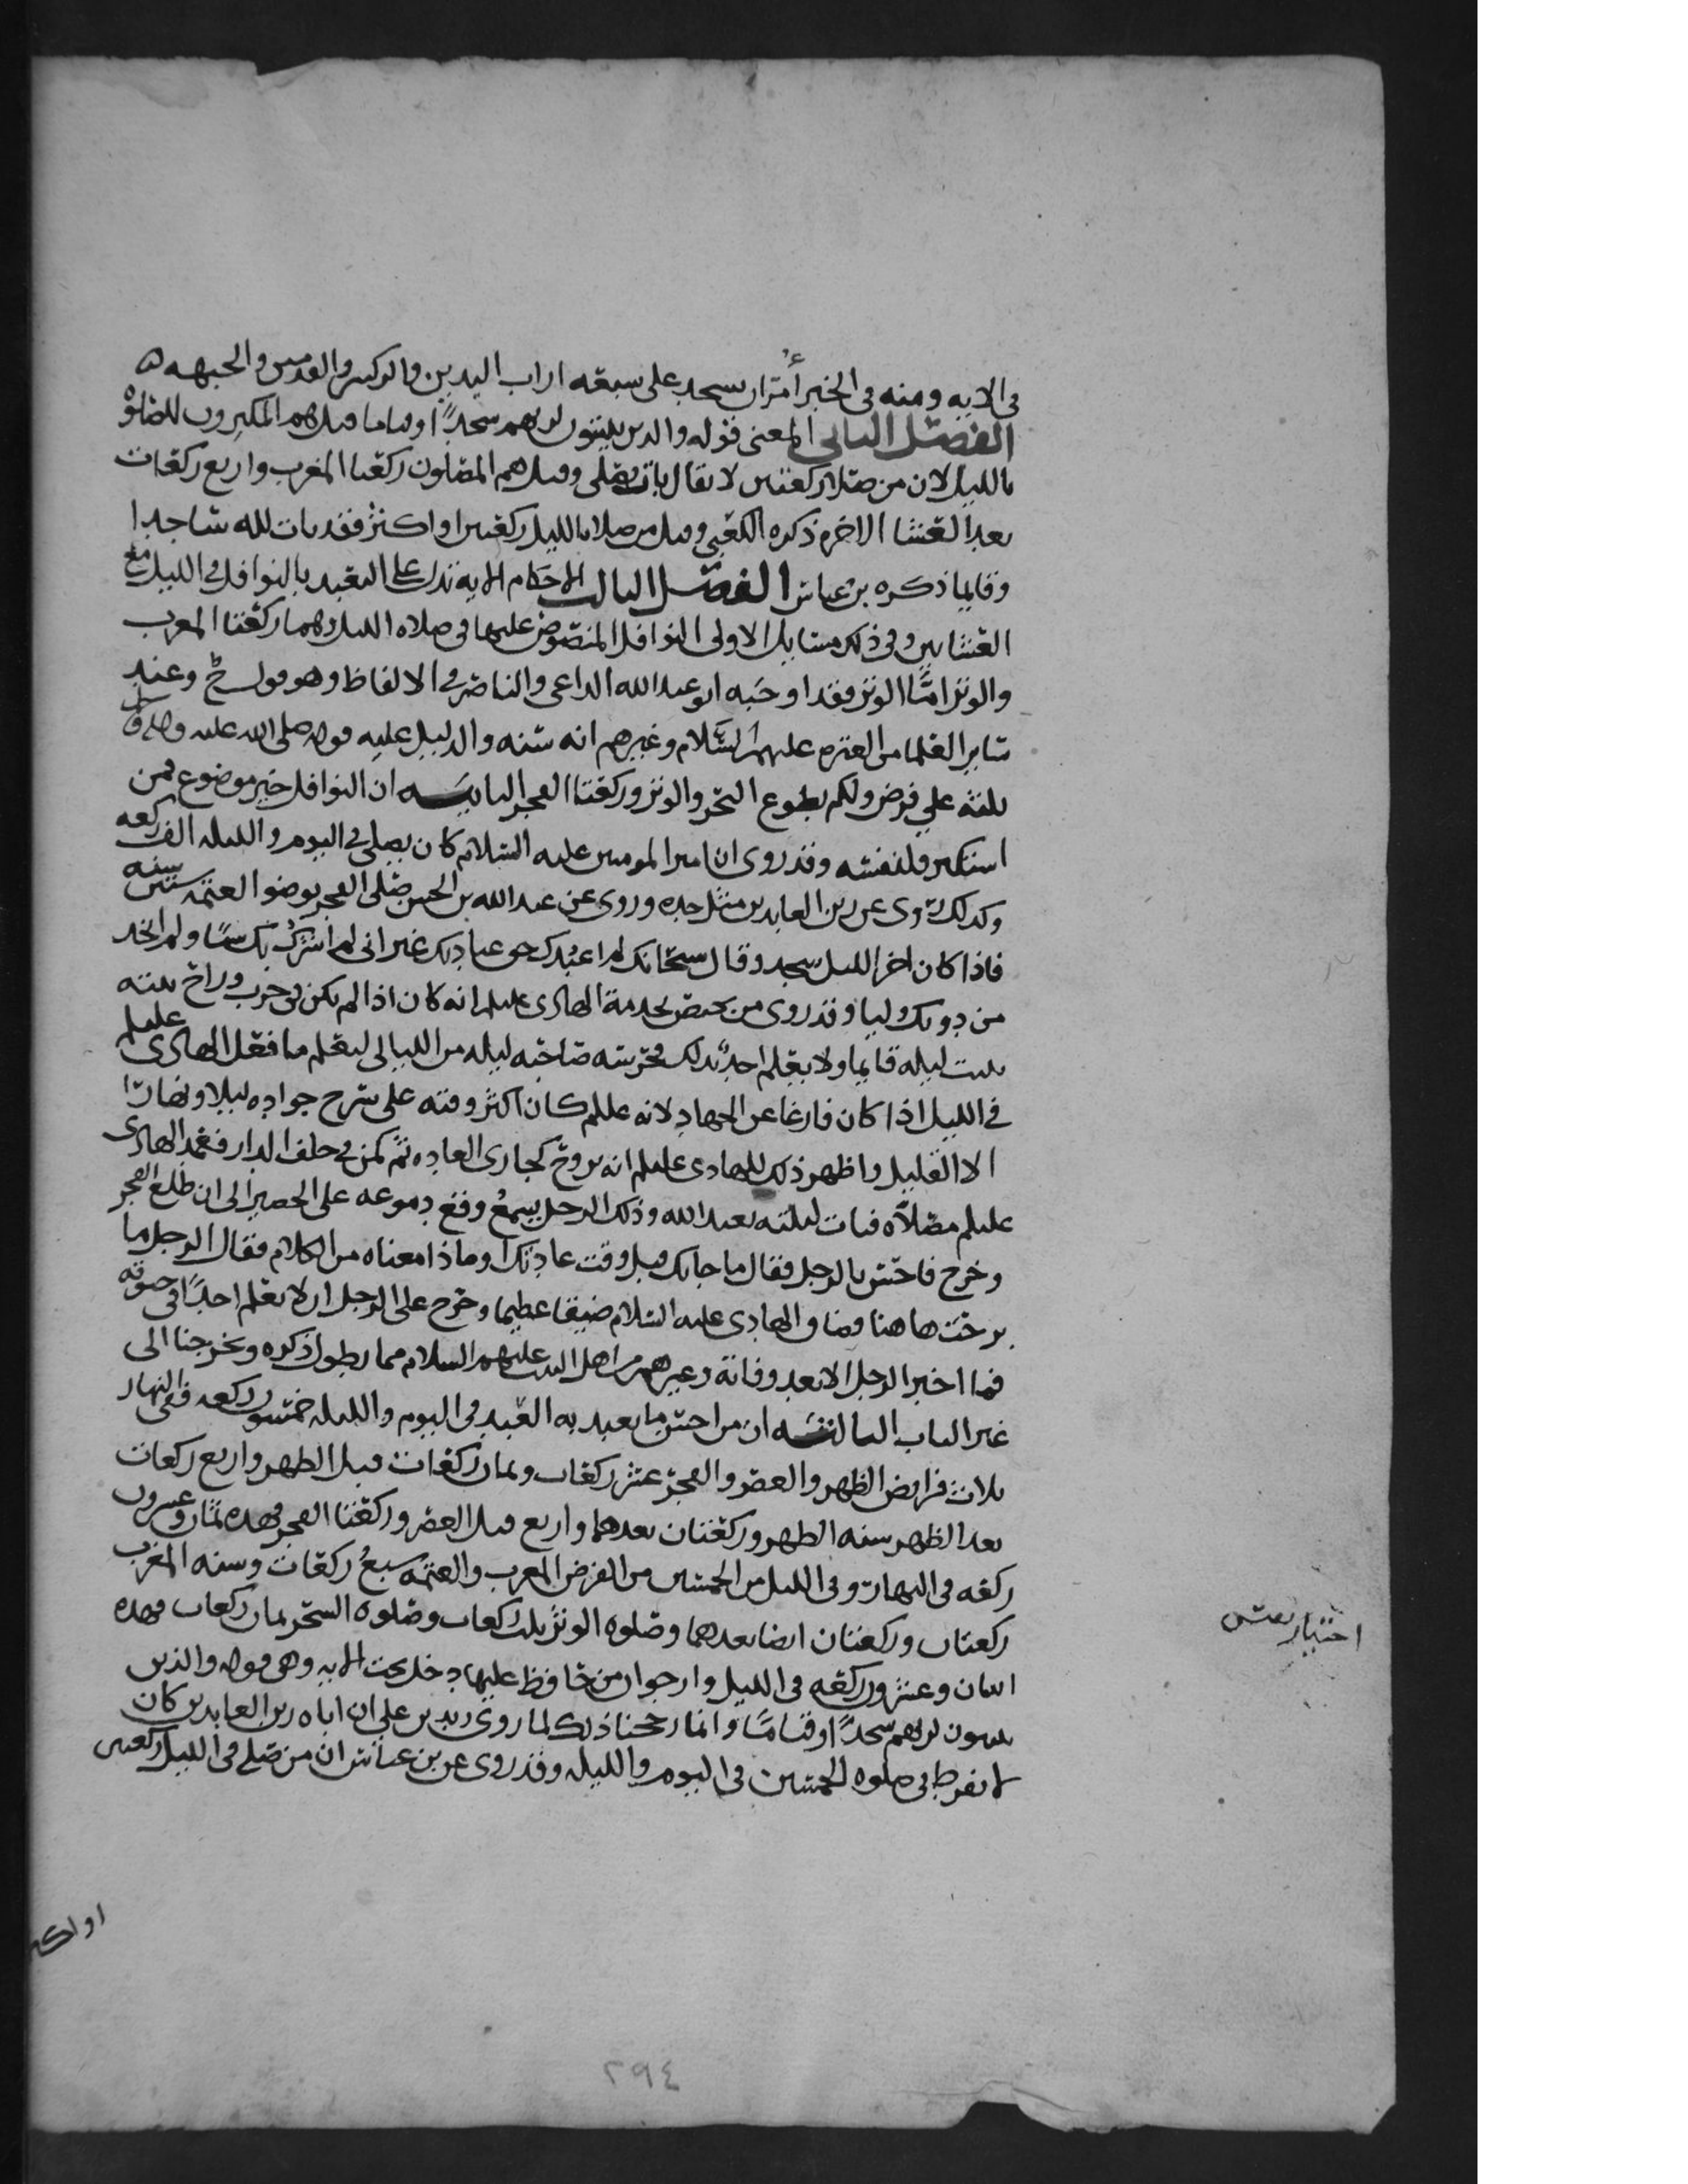 في الايه ومنه في الخبر أُمر ان يسجد على سبعه اراب اليدين والركبتين والقدمين والجبهه ه
الفصل الثاني المعنى قوله والذين يبيتون لربهم سجداً وقياما قيل هم المكثرون للصلوة
بالليل لان من صلا ركعتين لا يقال بات يصلي وقيل هم المصلون ركعتا المغرب واربع ركعات
بعد العشا الاخره ذكره الكعبي وقيل من صلا بالليل ركعتين او اكثر فقد بات لله ساجدا
وقايما ذكره بن عباس الفصل الثالث الاحكام الايه تدل على التعبد بالنوافل في الليل مع
العشايين وفي ذلك مسايل الاولى النوافل المنصوص عليها في صلاه الليل وهما ركعتا المغرب
والوتر امّا الوتر فقد اوجبه ابو عبدالله الداعي والناصر في الالفاظ وهو قول ح وعند
ساير العلما من العتره عليهم السلام وغيرهم انه سنه والدليل عليه قوله صلى الله عليه وعلى اله
ثلثه علي فرض ولكم تطوع النحر والوتر وركعتا الفجر الثانيـــه ان النوافل خير موضوع فمن
استكثر فلنفسه وقد روى ان امير المومنين عليه السلام كان يصلي في اليوم والليله الف ركعه
وكذلك روى عن زين العابدين مثل جده وروى عن عبدالله بن الحسن صلى الفجر بوضو العتمه ستين سنه
فاذا كان اخر الليل سجد وقال سبحانك لم اعبدك حق عبادتك غير اني لم اشرك بك شيا ولم اتخذ
من دونك وليا وقد روى من يختص بخدمة الهادى عليلم انه كان اذا لم يكن في حرب وراح بيته
يبيت ليله قايما ولا يعلم احدٌ بذلك فحرسه صاحبه ليله من الليالي ليعلم ما فعل الهادى عليلم
في الليل اذا كان فارغا عن الجهاد لانه عليلم كان اكثر وقته على سرج جواده ليلا ونهارا
الا القليل واظهر ذلك للهادى عليلم انه يروح كجارى العاده ثم كمن في خلف الدار فعمد الهادى
عليلم مصلاه فبات ليلته يعبد الله وذلك الرجل يسمع وقع دموعه على الحصير الى ان طلع الفجر
وخرج فاحس بالرجل فقال ما جابك قبل وقت عادتك او ماذا معناه من الكلام فقال الرجل ما
برحت هاهنا فضاق الهادى عليه السلام ضيقا عظيما وحرج على الرجل ان لا يعلم احداً في حيوته
فما اخبر الرجل الا بعد وفاته وغيرهم من اهل البيت عليهم السلام مما يطول ذكره ويخرجنا الى
غير الباب الثالثـــه ان من احسن ما يعبد به العبد في اليوم والليله خمسون ركعه ففي النهار
ثلاث فرايض الظهر والعصر والفجر عشر ركعات وثمان ركعات قبل الظهر واربع ركعات
بعد الظهر سنه الظهر وركعتان بعدهما واربع قبل العصر وركعتا الفجر فهده ثمان وعشرون
ركعه في النهار وفي الليل من الخمسين من الفرض المغرب والعتمه سبعُ ركعات وسنه المغرب
ركعتان وركعتان ايضا بعدهما وصلوه الوتر ثلث ركعات وصلوه السحر ثمان ركعات فهده
اثنان وعشرون ركعه في الليل وارجوا ان من حافظ عليها دخل تحت الايه وهي قوله والذين
يبيتون لربهم سجداً وقياماً وانما رجحنا ذلك لما روى زيد بن علي ان اباه زين العابدين كان
لا يفرط في صلوه الخمسين في اليوم والليله وقد روى عن بن عباس ان من صلى في الليل ركعتين
او اكثر
٢٩٤